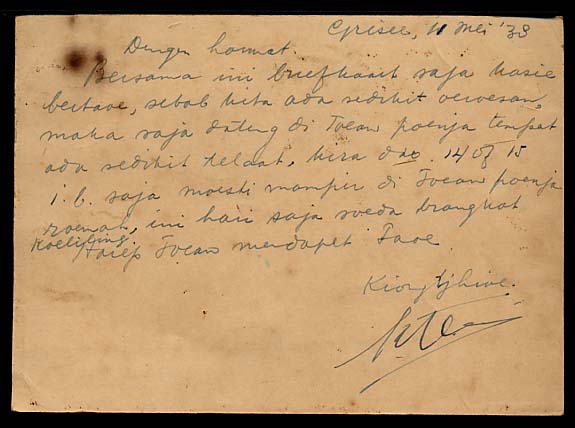 Grisee, 11 Mei '33
Dengen hormat.
Bersama ini briefkaart saja kasie
beritaoe, sebab kita ada sedikit oeroesan,
maka saja dateng di Toean poenja tempat
ada sedikit telaat, kira dao. 14 of 15
i.b. saja moesti mampir di Toean poenja
roemah, ini hari saja soeda brangkat
koeliling
Harep Toean mendapet Taoe.
Kiong tjhioe.